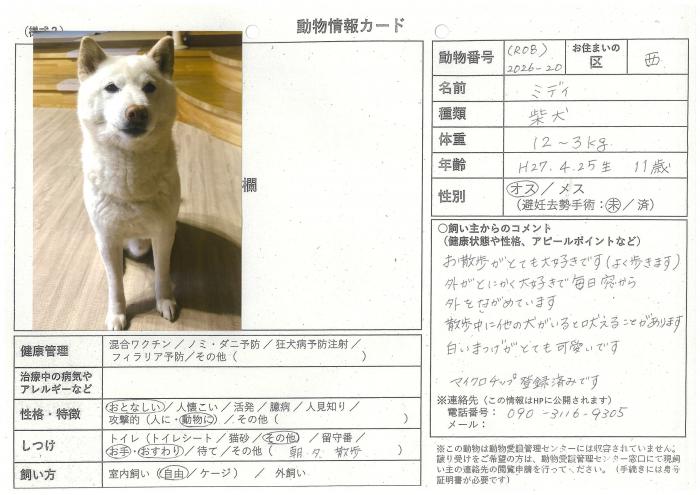 動物情報カード
欄
動物番号 (ROB) 2026-20 お住まいの区 西
名前 ミディ
種類 柴犬
体重 12～3kg
年齢 H27.4.25生 11歳
性別 オス / メス
(避妊去勢手術：未 / 済)
○飼い主からのコメント
(健康状態や性格、アピールポイントなど)
お散歩がとても大好きです(よく歩きます)
外がとにかく大好きで毎日窓から
外をながめています
散歩中に他の犬がいると吠えることがあります
白いまつげがとても可愛いです
マイクロチップ登録済みです
※連絡先 (この情報はHPに公開されます)
電話番号： 090-3116-9305
メール：
健康管理 混合ワクチン / ノミ・ダニ予防 / 狂犬病予防注射 /
フィラリア予防 / その他 ( )
治療中の病気や
アレルギーなど
性格・特徴 おとなしい / 人懐こい / 活発 / 臆病 / 人見知り /
攻撃的 (人に・動物に) / その他 ( )
しつけ トイレ (トイレシート / 猫砂 / その他) / 留守番 /
お手・おすわり / 待て / その他 ( 朝、夕 散歩 )
飼い方 室内飼い (自由 / ケージ) / 外飼い
※この動物は動物愛護管理センターには収容されていません。
譲り受けをご希望の方は、動物愛護管理センター窓口にて現飼
い主の連絡先の閲覧申請を行ってください。(手続きには身分
証明書が必要です)